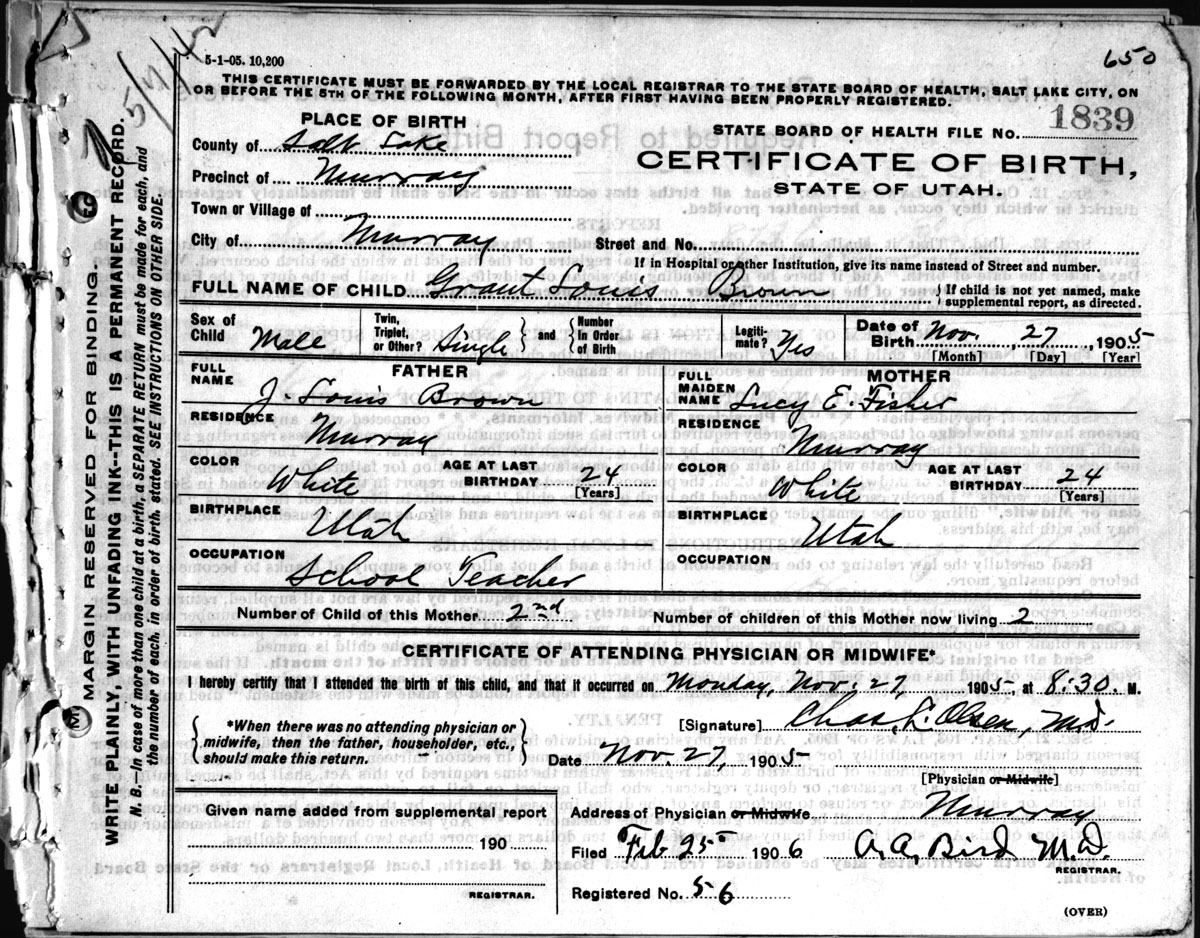 650
5/11/42
5-1-05. 10,200
THIS CERTIFICATE MUST BE FORWARDED BY THE LOCAL REGISTRAR TO THE STATE BOARD OF HEALTH, SALT LAKE CITY, ON
OR BEFORE THE 5TH OF THE FOLLOWING MONTH, AFTER FIRST HAVING BEEN PROPERLY REGISTERED.
PLACE OF BIRTH
STATE BOARD OF HEALTH FILE NO. 1839
County of Salt Lake
CERTIFICATE OF BIRTH,
Precinct of Murray
STATE OF UTAH.
Town or Village of
City of Murray Street and No.
If in Hospital or other Institution, give its name instead of Street and number.
FULL NAME OF CHILD Grant Louis Brown } If child is not yet named, make
supplemental report, as directed.
Sex of Child Male
Twin, Triplet, or Other? Single } and { Number In Order of Birth
Legiti- mate? Yes
Date of Birth Nov. 27, 1905
[Month] [Day] [Year]
FATHER
FULL NAME J. Louis Brown
RESIDENCE Murray
COLOR White AGE AT LAST BIRTHDAY 24
[Years]
BIRTHPLACE Utah
OCCUPATION School Teacher
MOTHER
FULL MAIDEN NAME Lucy E. Fisher
RESIDENCE Murray
COLOR White AGE AT LAST BIRTHDAY 24
[Years]
BIRTHPLACE Utah
OCCUPATION
Number of Child of this Mother 2nd Number of children of this Mother now living 2
CERTIFICATE OF ATTENDING PHYSICIAN OR MIDWIFE*
I hereby certify that I attended the birth of this child, and that it occurred on Monday, Nov. 27, 1905 at 8:30. M.
{ *When there was no attending physician or
midwife, then the father, householder, etc.,
should make this return. }
[Signature] Chas. L. Olsen, M.D.
Date Nov. 27, 1905
[Physician or Midwife]
Given name added from supplemental report
190
REGISTRAR.
Address of Physician or Midwife Murray
Filed Feb 25 1906 A. A. Bird M.D.
REGISTRAR.
Registered No. 56
(OVER)
MARGIN RESERVED FOR BINDING.
WRITE PLAINLY, WITH UNFADING INK--THIS IS A PERMANENT RECORD.
N. B.—In case of more than one child at a birth, a SEPARATE RETURN must be made for each, and
the number of each, in order of birth, stated. SEE INSTRUCTIONS ON OTHER SIDE.